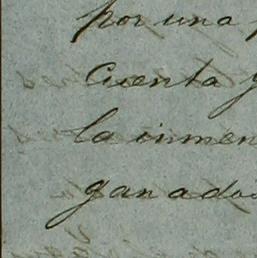 por una
Cuenta y
la inmen
ganado